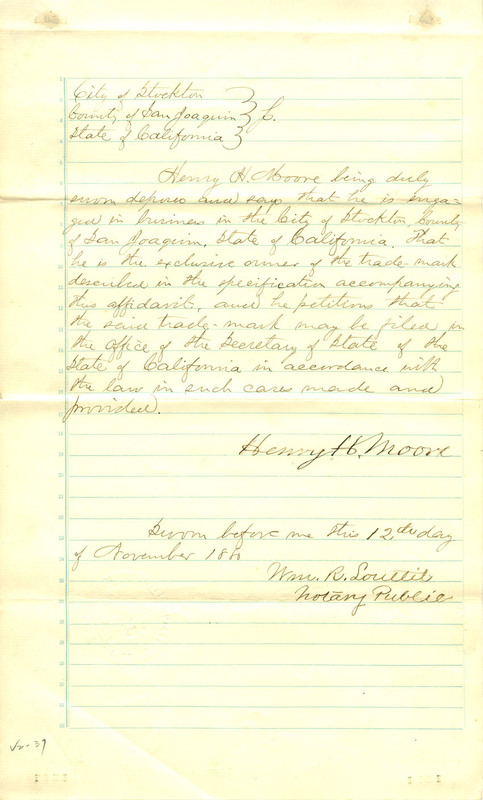 City of Stockton
County of San Joaquin
State of California
Henry H. Moore being duly
sworn deposes and says that he is enga-
ged in business in the City of Stockton, County
of San Joaquin, State of California. That
he is the exclusive owner of the trade-mark
described in the specification accompanying
this affidavit, and he petitions that
the said trade-mark may be filed in
the office of the Secretary of State of the
State of California in accordance with
the law in such cases made and
provided.
Henry H. Moore
Sworn before me this 12th day
of November
Wm. R. Louttit
Notary Public